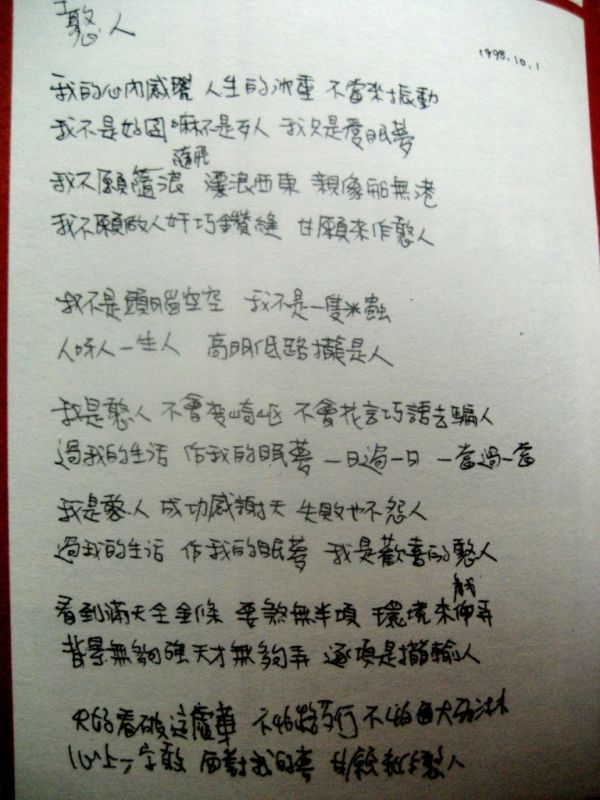 憨人
1998.10.1
我的心內感覺 人生的沈重 不當來振動
我不是好囝嘛不是歹人 我只是愛眠夢
隨飛
我不願隨浪 漂浪西東 親像船無港
我不願做人奸巧鑽縫 甘願來作憨人
我不是頭腦空空 我不是一隻米蟲
人呀人一生人 高明低路攏是人
我是憨人 不會變崎嶇 不會花言巧語去騙人
過我的生活 作我的眠夢 一日過一日 一當過一當
我是憨人 成功感謝天 失敗也不怨人
過我的生活 作我的眠夢 我是歡喜的憨人
看到滿天全金條 要煞無半項 環境來 弄
背景無夠強 天才無夠弄 逐項是攏輸人
只好看破這虛華 不怕路歹行 不怕
心上一字敢 面對我的夢 甘願來作憨人